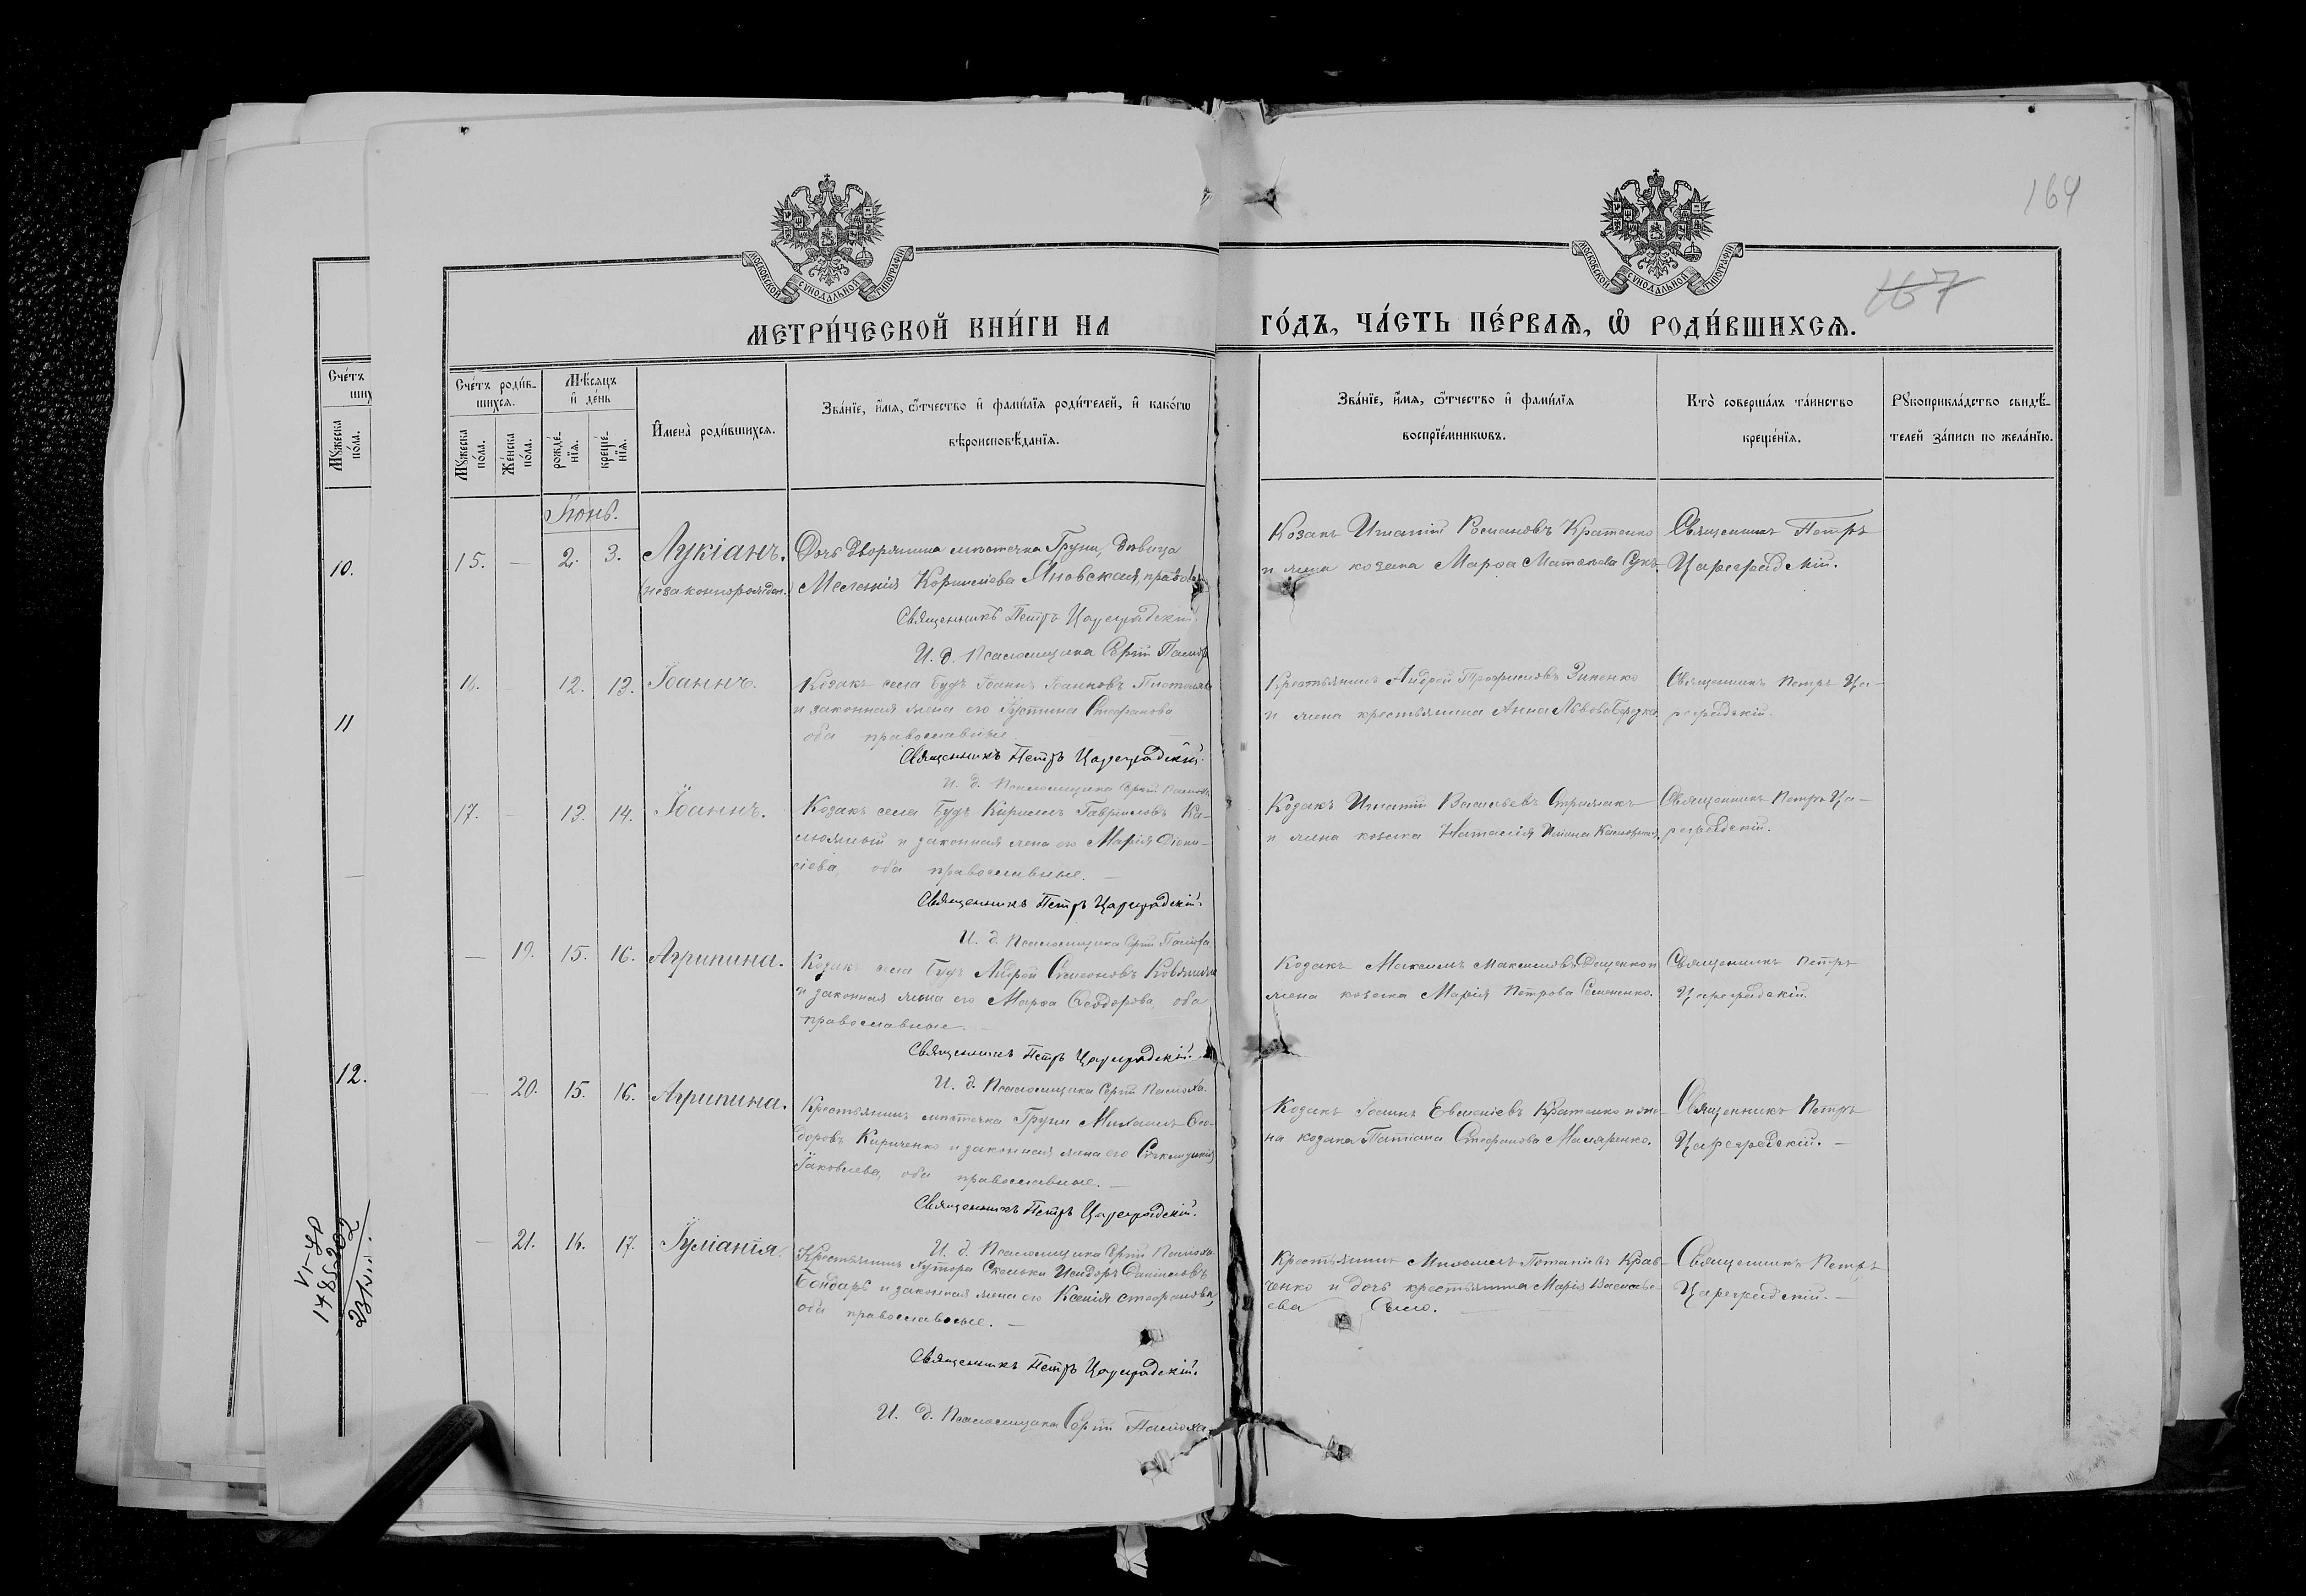 164
167
МОСКОВСКОЙ СУНОДАЛЬНОЙ ТИПОГРАФІИ
МОСКОВСКОЙ СУНОДАЛЬНОЙ ТИПОГРАФІИ
МЕТРИ́ЧЕСКОЙ КНИ́ГИ НА ГО́ДЪ, ЧА́СТЬ ПЕ́РВАѦ, Ѽ РОДИ́ВШИХСѦ.
Сче́тъ роди́в-
шихсѧ.
Мꙋ́жеска по́ла.
Же́нска по́ла.
Мѣ́сѧцъ и҆ де́нь
рожде́-
нїѧ.
креще́-
нїѧ.
И҆мена̀ роди́вшихсѧ.
Зва́нїе, и҆́мѧ, ѻ҆́тчество и҆ фами́лїѧ роди́телей, и҆ како́гѡ
вѣроисповѣ́данїѧ.
Зва́нїе, и҆́мѧ, ѻ҆́тчество и҆ фами́лїѧ
воспрїе́мникѡвъ.
Кто̀ соверша́лъ та́инство
креще́нїѧ.
Рꙋкоприкла́дство свидѣ́-
телей за́писи по жела́нїю.
Сче́тъ
Мꙋ́жеска по́ла.
10.
11
12.
Іюнь.
15. — 2. 3. Лукіанъ.
(незаконнорожден.)
Дочь дворянина мѣстечка Груни, дѣвица
Меланія Корнилева Яновская, правосл
Священникъ Петръ Цареградскій.
И. д. Псаломщика Сергій
Козакъ Игнатій Романовъ Кратенко
и жена козака Марѳа Матѳеева
Священникъ Петръ
Цареградскій.
16. — 12. 13. Іоаннъ.
Козакъ села Будъ Іоаннъ Іоанновъ
и законная жена его Іустина Стефанова
оба православные
Священникъ Петръ Цареградскій.
И. д. Псаломщика Сергій
Крестьянинъ Андрей Трофимовъ Зиненко
и жена крестьянина Анна Львова
Священникъ Петръ Ца-
реградскій.
17. — 13. 14. Іоаннъ.
Козакъ села Будъ Кириллъ Гавриловъ Ка-
и законная жена его Марія Діони-
сіева, оба православные. —
Священникъ Петръ Цареградскій.
И. д. Псаломщика Сергій
Козакъ Игнатій Васильевъ
и жена козака Наталія
Священникъ Петръ Ца-
реградскій.
— 19. 15. 16. Агрипина.
Козакъ села Будъ Андрей Симеоновъ
и законная жена его Марѳа Ѳеодорова, оба
православные. —
Священникъ Петръ Цареградскій.
И. д. Псаломщика Сергій
Козакъ Максимъ Максимовъ Даценко и
жена козака Марія Петрова Семененко.
Священникъ Петръ
Цареградскій.
— 20. 15. 16. Агрипина.
Крестьянинъ мѣстечка Груни Михаилъ Ѳео-
доровъ Кириченко и законная жена его
Іаковлева, оба православные. —
Священникъ Петръ Цареградскій.
И. д. Псаломщика Сергій
Козакъ Іоаннъ Евменіевъ Кратенко и же-
на козака Татіана Стефанова Маляренко.
Священникъ Петръ
Цареградскій. —
— 21. 16. 17. Іуліанія.
Крестьянинъ хутора Исидоръ Даніиловъ
Бондарь и законная жена его Ксенія Стефанова,
оба православные. —
Священникъ Петръ Цареградскій.
И. д. Псаломщика Сергій
Крестьянинъ Михаилъ Потапіевъ Крав-
ченко и дочь крестьянина Марія Василье-
ева
Священникъ Петръ
Цареградскій. —